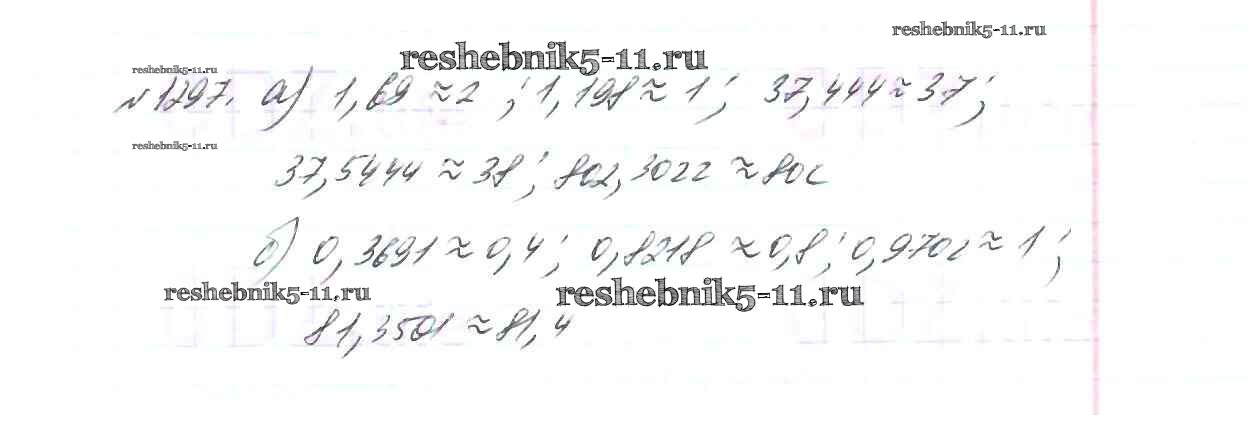 reshebnik5-11.ru
reshebnik5-11.ru
reshebnik5-11.ru
№1297. а) 1,69 ≈ 2; 1,198 ≈ 1; 37,444 ≈ 37;
reshebnik5-11.ru
37,5444 ≈ 38; 802,3022 ≈ 802
б) 0,3691 ≈ 0,4; 0,8218 ≈ 0,8; 0,9702 ≈ 1;
reshebnik5-11.ru
reshebnik5-11.ru
81,3501 ≈ 81,4